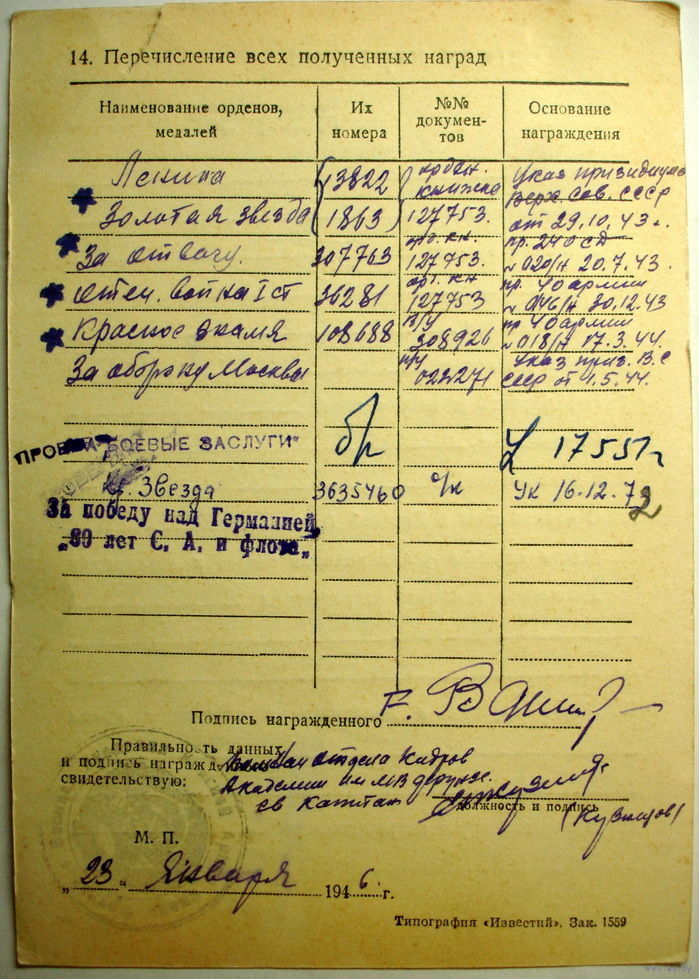 14. Перечисление всех полученных наград
Наименование орденов, медалей
Их номера
№№ документов
Основание награждения
Ленина 13822 орден. книжка Указ президиума Верх. Сов. СССР
Золотая звезда 1863 127753. от 29.10.43 г.
За отвагу. 307763 ор. кн. 127753. пр. 240 сд № 020/н 20.7.43.
Отеч. война I ст 36281 орд. кн 127753 пр. 40 армии № 046/н 30.12.43
Красное знамя 108688 в/у 308926 пр 40 армии № 018/н 17.3.44.
За оборону Москвы п/у 022271 Указ през. В.С СССР от 1.5.44.
БОЕВЫЕ ЗАСЛУГИ" б/н 17551
Кр. Звезда 3635460 о/к Ук 16.12.72
За победу над Германией
„30 лет С. А. и флота„
Подпись награжденного
Правильность данных
и подпись награжденного
свидетельствую:
отдела кадров
Академии им МВ Фрунзе
капитан
должность и подпись
(Кузнецов)
М. П.
„23“ Января 1946 г.
Типография «Известий». Зак. 1559